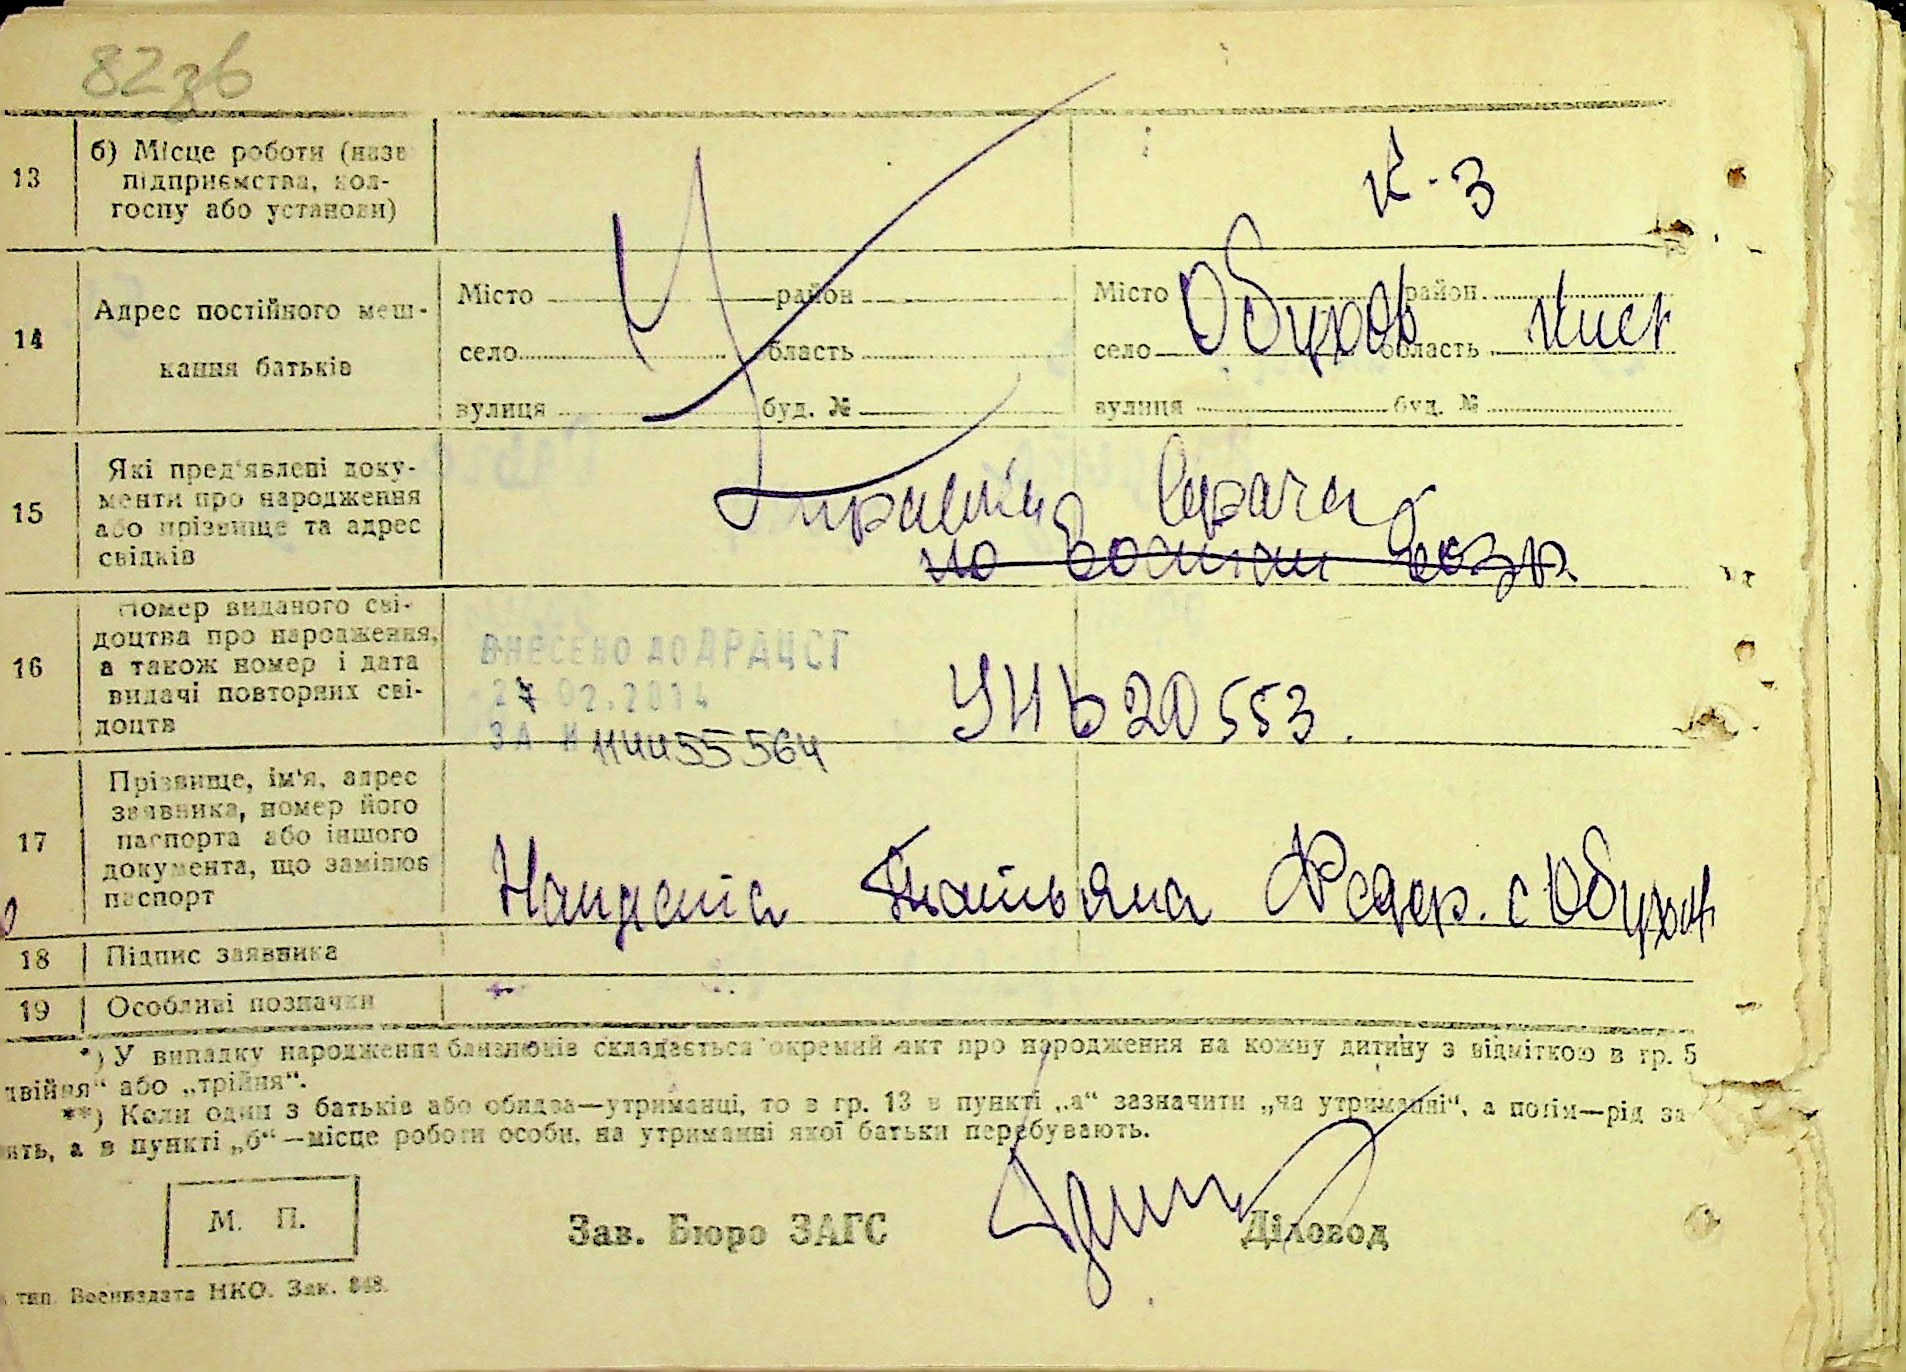 82зв
13
б) Місце роботи (назв
підприємства, кол-
госпу або установи)
к-з
14
Адрес постійного меш-
кання батьків
Місто район
село область
вулиця буд. №
Місто Обухов район Киев
село область
вулиця буд. №
15
Які пред'явлені доку-
менти про народження
або прізвище та адрес
свідків
справка врача
16
Номер виданого сві-
доцтва про народження,
а також номер і дата
видачі повторних сві-
доцтв
ВНЕСЕНО ДО ДРАЦСГ
27.02.2014
ЗА № 114455564
УНЬ20553.
17
Прізвище, ім'я, адрес
заявника, номер його
паспорта або іншого
документа, що замінює
паспорт
Татьяна Федор. с Обухов
18
Підпис заявника
19
Особливі позначки
*) У випадку народження близнюків складається окремий акт про народження на кожну дитину з відміткою в гр. 5
двійня" або „трійня".
**) Коли один з батьків або обидва—утриманці, то в гр. 13 в пункті „а" зазначити „на утриманні", а потім—рід за
ять, а в пункті „б"—місце роботи особи, на утриманні якої батьки перебувають.
М. П.
Зав. Бюро ЗАГС
Діловод
тип. Воениздата НКО. Зак. 848.